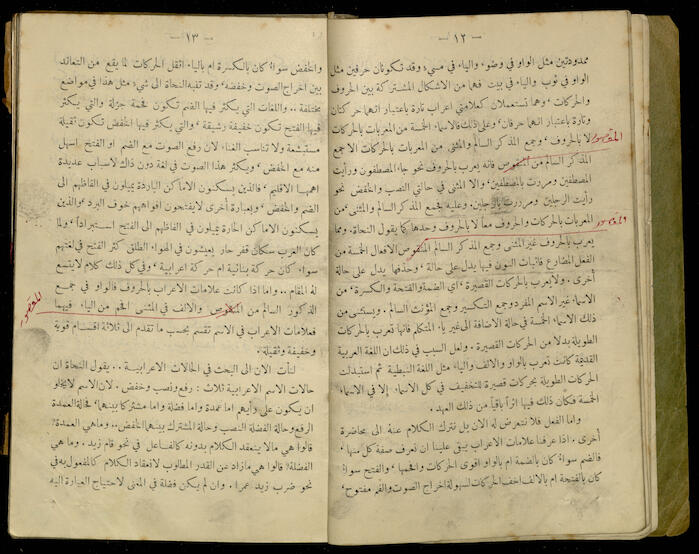 — ١٢ —
ممدودتين مثل الواو في وضوء والياء في مسيء وقد تكونان حرفين مثل
الواو في ثوب والياء في بيت فهما من الاشكال المشتركة بين الحروف
والحركات ، وهما تستعملان كعلامتي اعراب تارة باعتبار انهما حركتان
وتارة باعتبار انهما حرفان، وعلى ذلك فالاسماء الخمسة من المعربات بالحركات
لا بالحروف، وجمع المذكر السالم والمثنى من المعربات بالحركات الا جمع
المقصور
المذكر السالم من المنقوص فانه يعرب بالحروف نحو جاء المصطفون ورأيت
المصطفين ومررت بالمصطفين، والا المثنى في حالتي النصب والخفض نحو
رأيت الرجلين ومررت بالرجلين. وعليه فجمع المذكر السالم والمثنى، من
المعربات بالحركات والحروف معاً لا بالحروف وحدها كما يقول النحاة، وما
يعرب بالحروف غير المثنى وجمع المذكر السالم المنقوص الافعال الخمسة من
المقصور
الفعل المضارع فاثبات النون فيها يدل على حالة ، وحذفها يدل على حالة
أخرى. ولا يعرب بالحركات القصيرة، اي الضمة والفتحة والكسرة، من
الاسماء غير الاسم المفرد وجمع التكسير وجمع المؤنث السالم. ويستثنى من
ذلك الاسماء الخمسة في حالة الاضافة الى غير ياء المتكلم فانها تعرب بالحركات
الطويلة بدلا من الحركات القصيرة. ولعل السبب في ذلك ان اللغة العربية
القديمة كانت تعرب بالواو والالف والياء مثل اللغة النبطية ثم استبدلت
الحركات الطويلة بحركات قصيرة للتخفيف في كل الاسماء الا في الاسماء
الخمسة فكان ذلك فيها اثراً باقياً من ذلك العهد.
واما الفعل فلا نتعرض له الان بل نترك الكلام عنه الى محاضرة
أخرى . اذا عرفنا علامات الاعراب بقي علينا ان نعرف صفة كل منها،
فالضم سواء كان بالضمة ام بالواو اقوى الحركات وافخمها ، والفتح سواء
كان بالفتحة ام بالالف اخف الحركات لسهولة اخراج الصوت والفم مفتوح،
— ١٣ —
والخفض سواء كان بالكسرة ام بالياء اثقل الحركات لما يقع من التعاند
بين اخراج الصوت وخفضه، وقد تنبه النحاة الى شيء مثل هذا في مواضع
مختلفة .. واللغات التي يكثر فيها الضم تكون فخمة جزلة والتي يكثر
فيها الفتح تكون خفيفة رشيقة ، والتي يكثر فيها الخفض تكون ثقيلة
مستبشعة ولا تناسب الغناء لان رفع صوت مع الضم او الفتح اسهل
منه مع الخفض ، ويكثر هذا الصوت في لغة دون ذاك لاسباب عديدة
اهمها الاقليم ، فالذين يسكنون الاماكن الباردة يميلون في الغالب الى
الضم والخفض ، وبعبارة أخرى لا يفتحون افواههم خوف البرد ، والذين
يسكنون الاماكن الحارة يميلون في الغالب الى الفتح استبراداً، ولما
كان العرب سكان قفر حار يعيشون في الهواء الطلق كثر الفتح في لغتهم
سواء كان حركة بنائية ام حركة اعرابية ، وفي كل ذلك كلام لا يتسع
له المقام .. واما اذا كانت علامات الاعراب بالحروف فالواو في جمع
الذكور السالم من المنقوص والالف في المثنى افخم من الياء فيهما
المقصور
فعلامات الاعراب في الاسم تقسم بحسب ما تقدم الى ثلاثة اقسام قوية
وخفيفة وثقيلة.
لنأت الان الى البحث في الحالات الاعرابية .. يقول النحاة ان
حالات الاسم الاعرابية ثلاث : رفع ونصب وخفض. لان الاسم لا يخلو
ان يكون على رأيهم اما عمدة واما فضلة واما مشتركا بينهما، فحالة العمدة
الرفع وحالة الفضلة النصب وحالة المشترك بينهما الخفض.. وما هي العمدة؟
قالوا هي ما لا ينعقد الكلام بدونه كالفاعل في نحو قام زيد . وما هي
الفضلة؟ قالوا هي ما زاد عن القدر المطلوب لانعقاد الكلام كالمفعول به في
نحو ضرب زيد عمرا . وان لم يكن فضلة في المعنى لاحتياج العبارة اليه